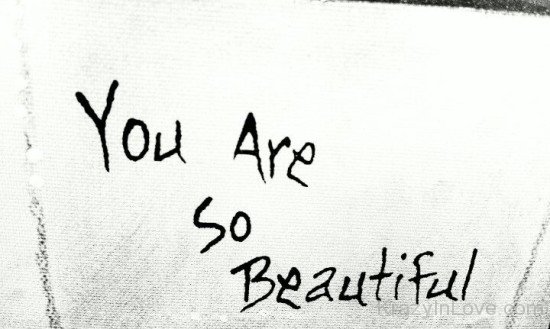 You Are
So
Beautiful
KrazyInLove.com